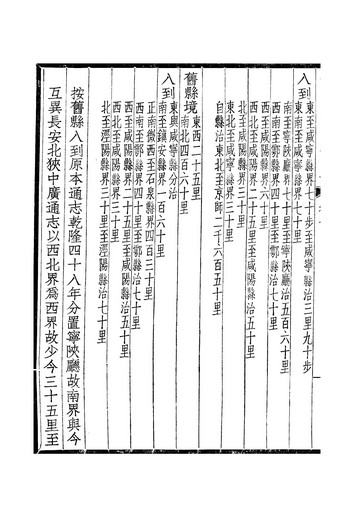 八到東至咸寧縣界七十步至咸寧縣治三里九十步
南至寧陝廳界七十里至寧陝廳治五百六十里
西南至鄠縣界四十里至鄠縣治七十里
西至咸陽縣界六十里
西北至咸陽縣界二十五里至咸陽縣治五十里
北至咸陽縣界三十里
東北至咸寧縣界三十里
自縣治東北至京師二千六百五十里
舊縣境東西二十五里
南北四百六十里
八到東與咸寧縣分治
東南至鎮安縣界一百六十里
正南微西至石泉縣界四百三十里
西南至鄠縣界四十里至鄠縣治七十里
西至咸陽縣界二十五里至咸陽縣治五十里
西北至咸陽縣界三十里
北至涇陽縣界三十里至涇陽縣治七十里
按舊縣八到原本通志乾隆四十八年分置寧陝廳故南界與今
互異長安北狹中廣通志以西北界為西界故少今三十五里至